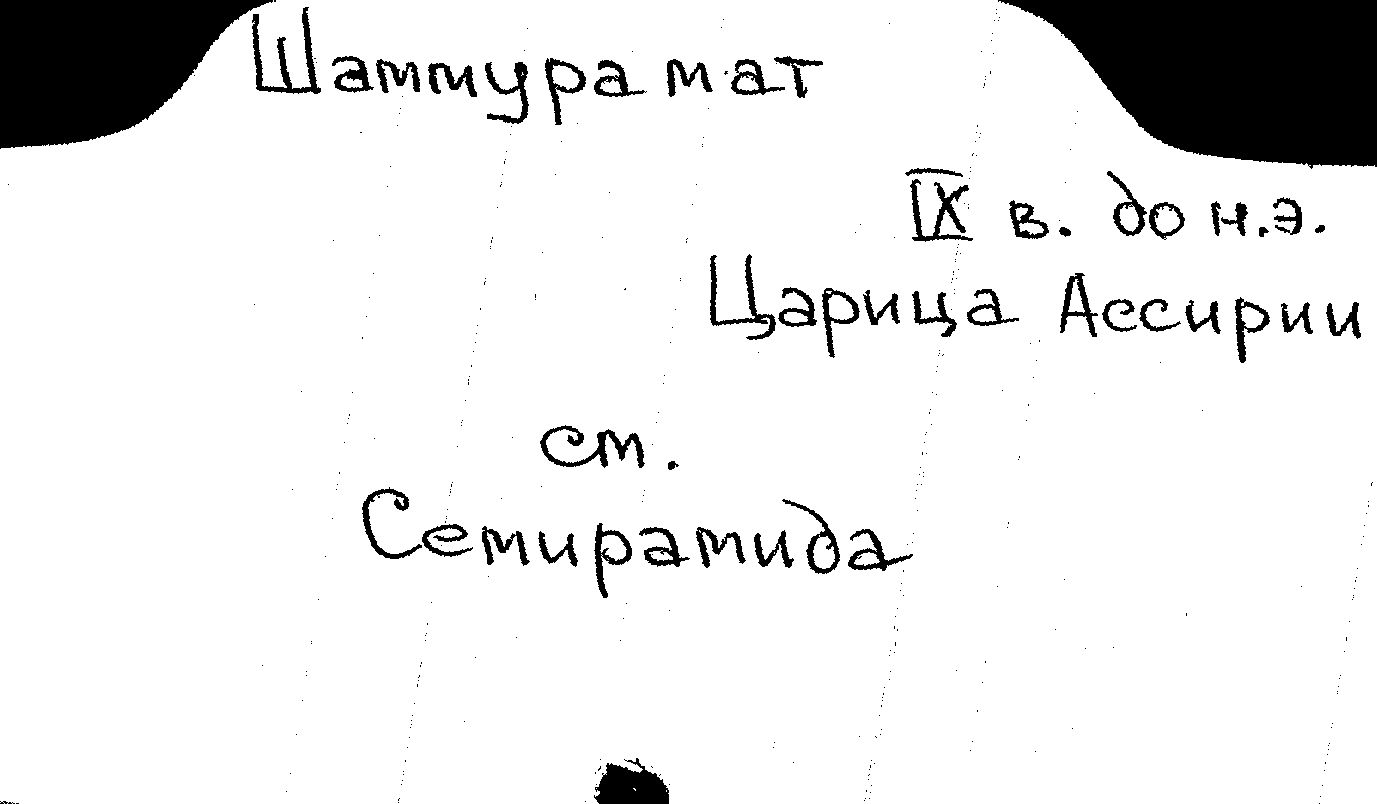 Шаммурамат
IX в. до н.э.
Царица Ассирии
см.
Семирамида